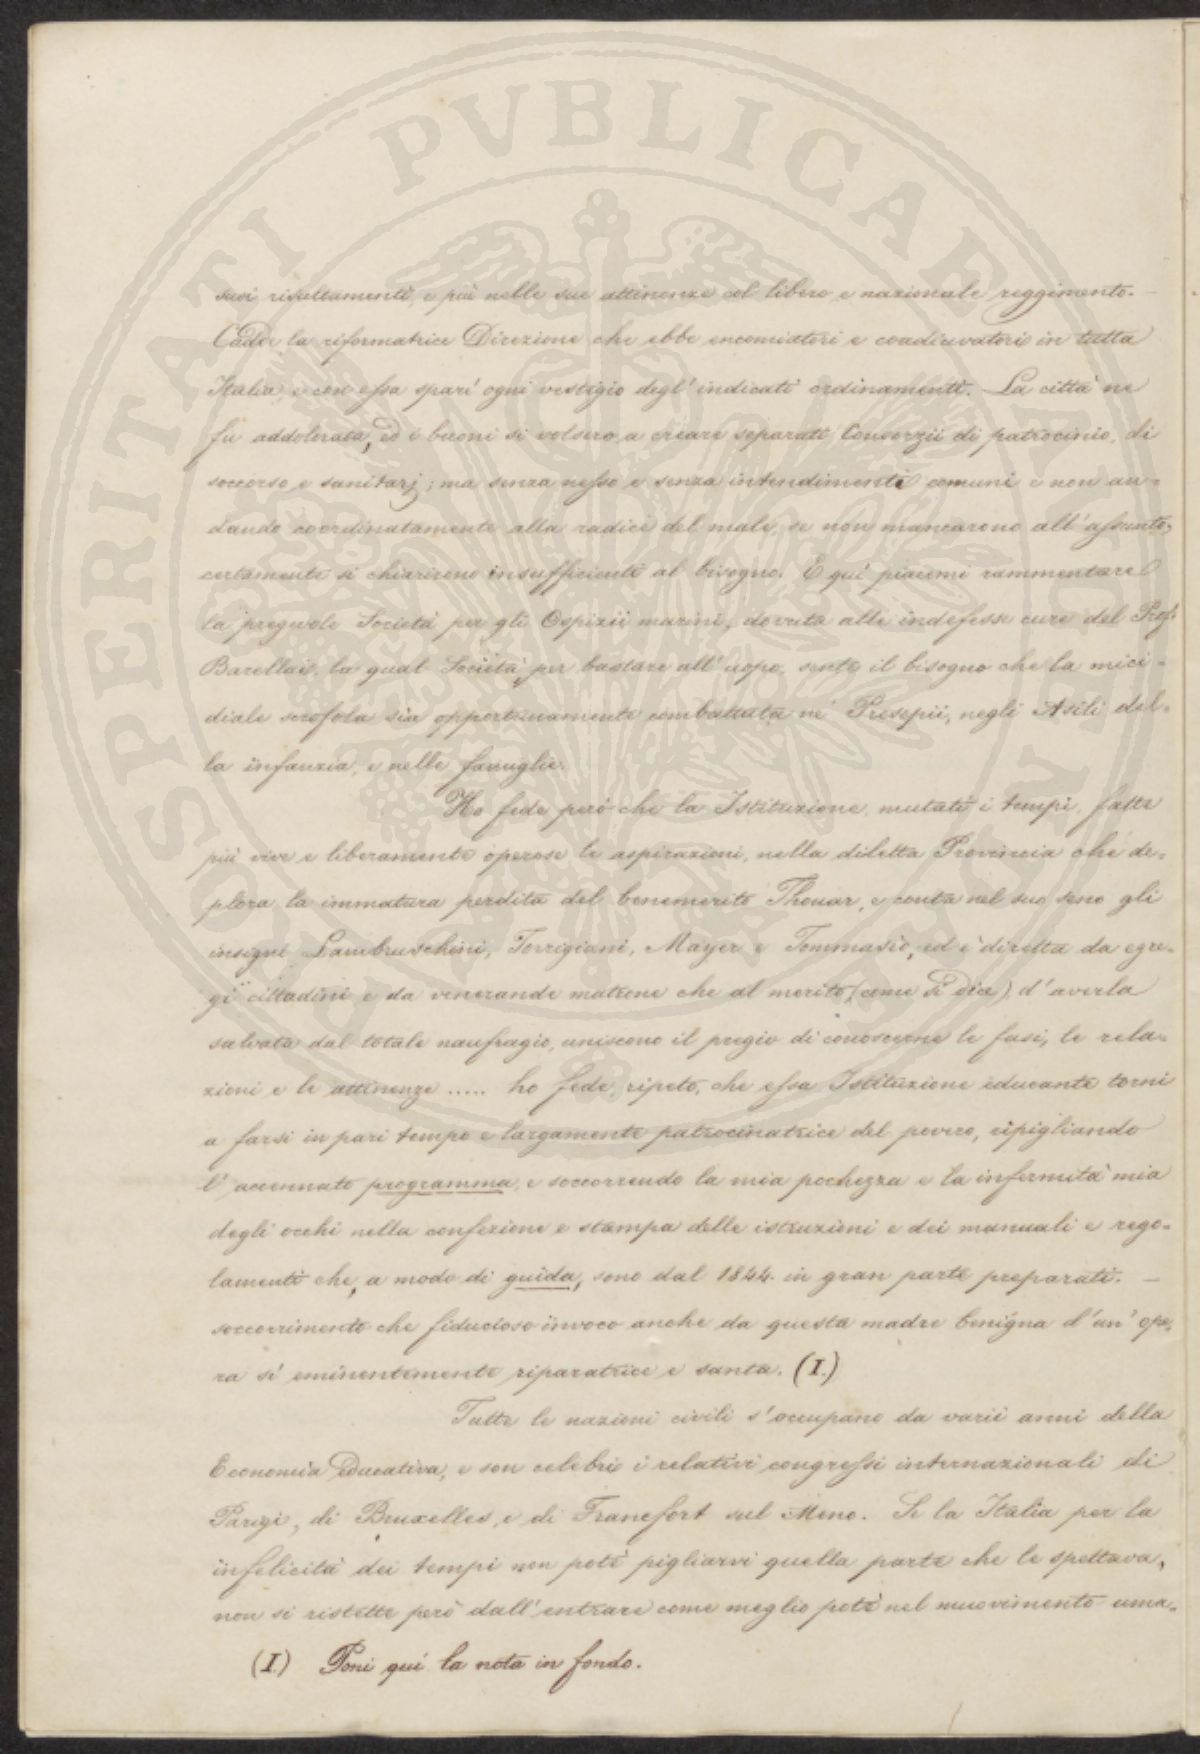 suoi risultamenti, e più nelle sue attinenze col libero e nazionale reggimento. —
Cadde la riformatrice Direzione che ebbe encomiatori e coadiuvatori in tutta
Italia, e con essa sparì ogni vestigio degl' indicati ordinamenti. La città ne
fu addolorata, ed i buoni si volsero a creare separati Consorzii di patrocinio, di
soccorso e sanitarj; ma senza nesso e senza intendimenti comuni e non an-
dando coordinatamente alla radice del male, se non mancarono all' assunto,
certamente si chiarirono insufficienti al bisogno. E quì piacemi rammentare
la pregevole Società per gli Ospizii marini, dovuta alle indefesse cure del Prof.
Barellai, la qual Società, per bastare all' uopo, sente il bisogno che la mici-
diale scrofola sia opportunamente combattuta ne' Presepii, negli Asili del-
la infanzia, e nelle famiglie.
Ho fede però che la Istituzione, mutati i tempi, fatte
più vive e liberamente operose le aspirazioni, nella diletta Provincia che de-
plora la immatura perdita del benemerito Thouar, e conta nel suo seno gli
insigni Lambruschini, Torrigiani, Mayer e Tommasèo, ed è diretta da egre-
gi cittadini e da venerande matrone che al merito (come si dice) d' averla
salvata dal totale naufragio, uniscono il pregio di conoscerne le fasi, le rela-
zioni e le attinenze ..... ho fede, ripeto, che essa Istituzione educante torni
a farsi in pari tempo e largamente patrocinatrice del povero, ripigliando
l' accennato programma, e soccorrendo la mia pochezza e la infermità mia
degli occhi nella confezione e stampa delle istruzioni e dei manuali e rego-
lamenti che, a modo di guida, sono dal 1844. in gran parte preparati. —
soccorrimento che fiducioso invoco anche da questa madre benigna d' un' ope-
ra sì eminentemente riparatrice e santa. (I.)
Tutte le nazioni civili s' occupano da varii anni della
Economia Educativa, e son celebri i relativi congressi internazionali di
Parigi, di Bruxelles, e di Francfort sul Meno. Se la Italia per la
infelicità dei tempi non potè pigliarvi quella parte che le spettava,
non si ristette però dall' entrare come meglio potè nel muovimento uma-
(I) Poni quì la nota in fondo.
SPERITATI PVBLICAE